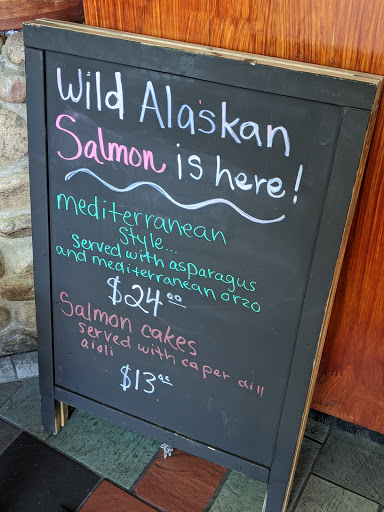 Wild Alaskan
Salmon is here!
mediterranean
style...
served with asparagus
and mediterranean orzo
$24.00
Salmon cakes
served with caper dill
aioli
$13.00